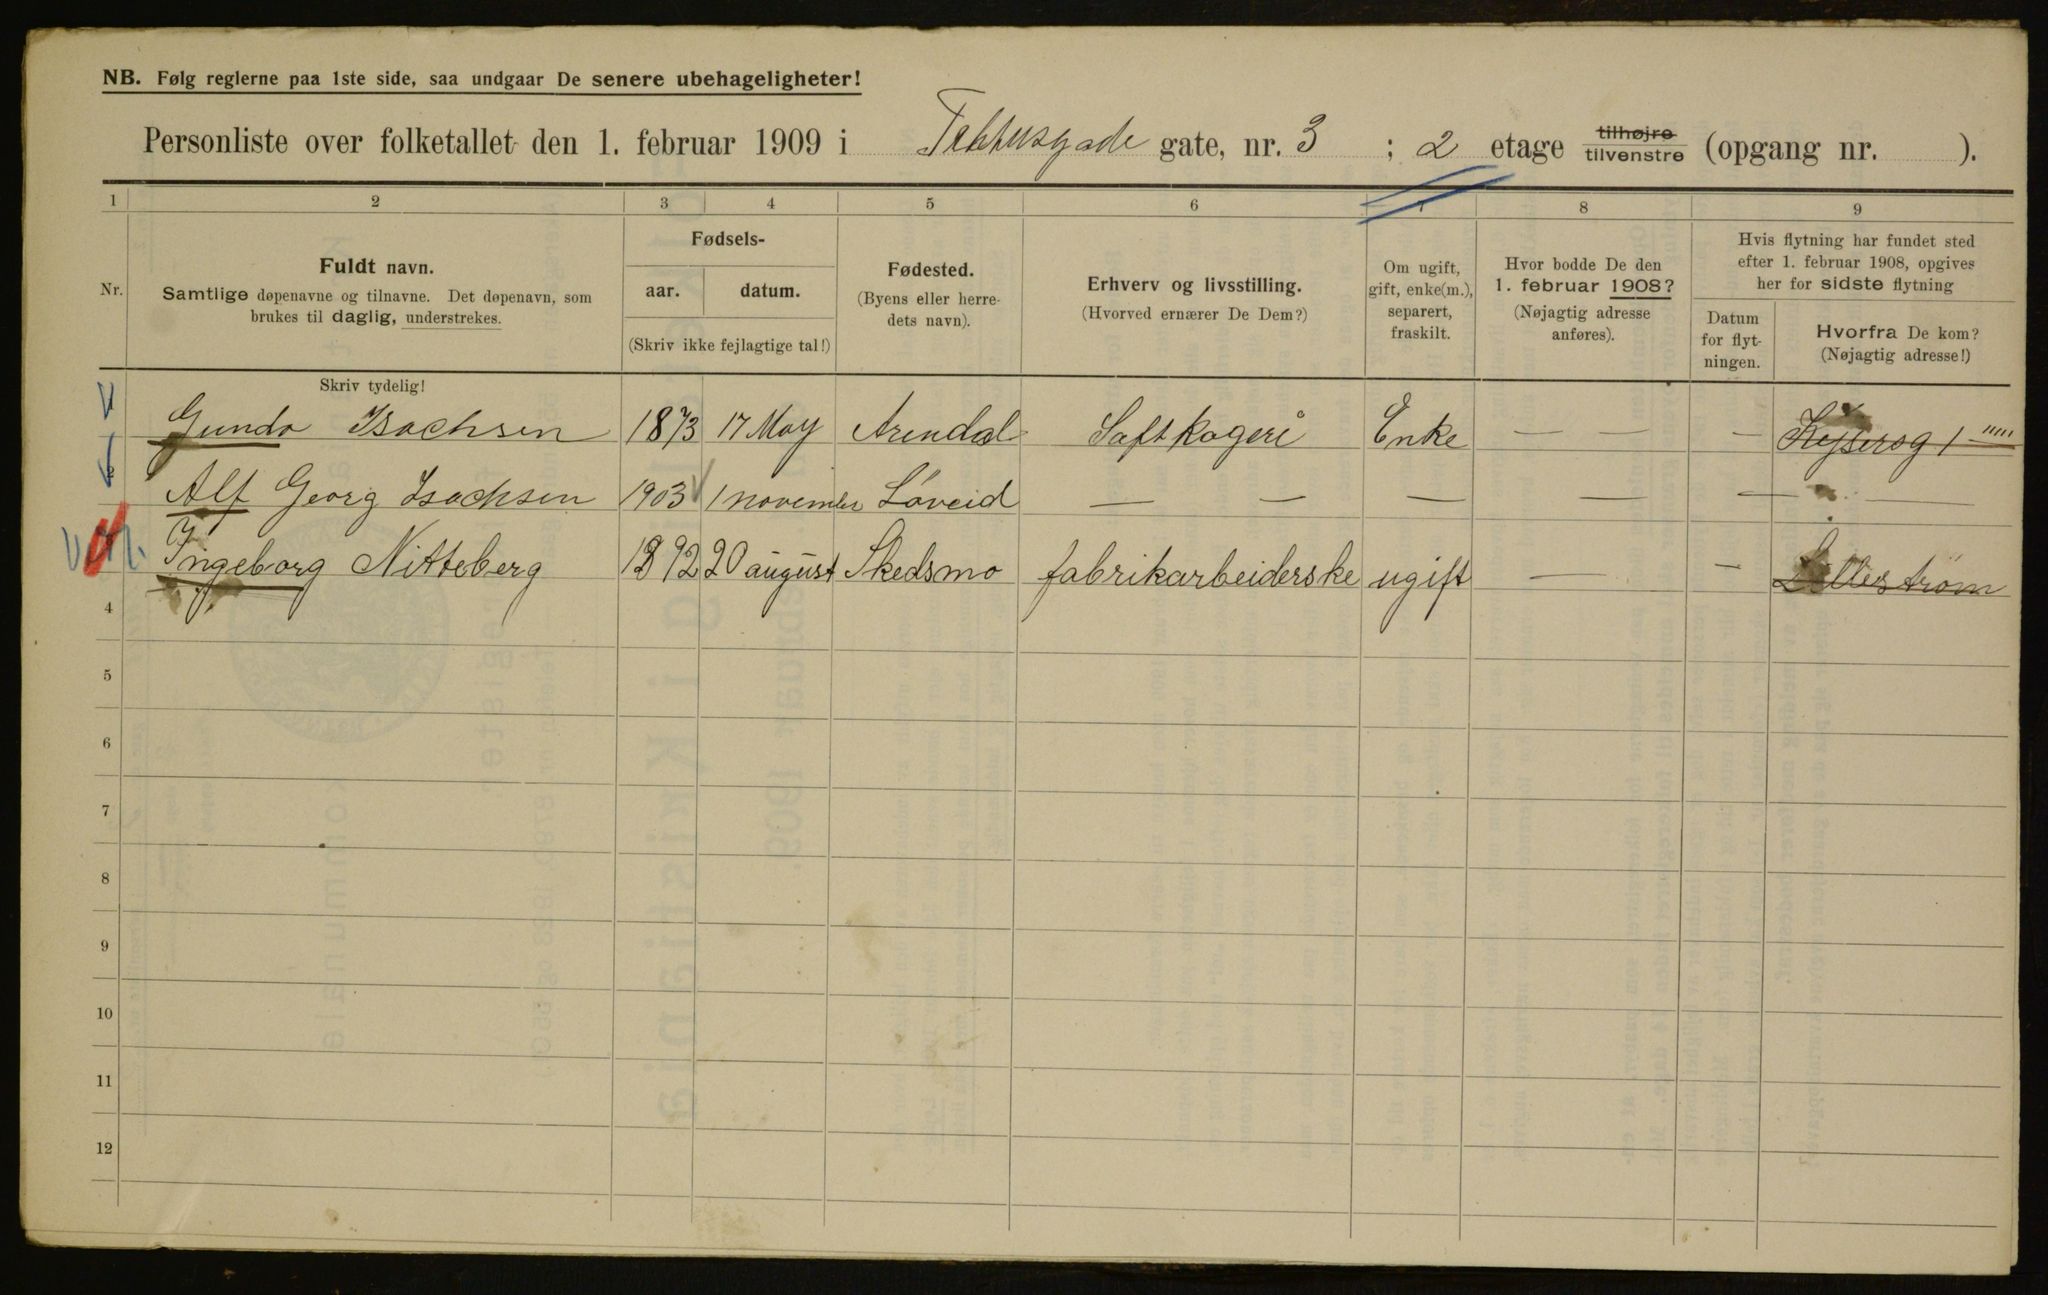 NB. Følg reglerne paa 1ste side, saa undgaar De senere ubehageligheter!
Personliste over folketallet den 1. februar 1909 i Tøhtusgade gate, nr. 3 ; 2 etage tilhøjre tilvenstre (opgang nr. ).
1 2 3 4 5 6 7 8 9
Nr.
Fuldt navn.
Samtlige døpenavne og tilnavne. Det døpenavn, som
brukes til daglig, understrekes.
Fødsels-
aar.
datum.
(Skriv ikke fejlagtige tal!)
Fødested.
(Byens eller herre-
dets navn).
Erhverv og livsstilling.
(Hvorved ernærer De Dem?)
Om ugift,
gift, enke(m.),
separert,
fraskilt.
Hvor bodde De den
1. februar 1908?
(Nøjagtig adresse
anføres).
Hvis flytning har fundet sted
efter 1. februar 1908, opgives
her for sidste flytning
Datum
for flyt-
ningen.
Hvorfra De kom?
(Nøjagtig adresse!)
Skriv tydelig!
Gunda Isachsen 1873 17 May Arendal Saftkogeri Enke — — — Keysersg 1
2 Alf Georg Isachsen 1903 1 november Løveid — — — — — —
Ingeborg Nitteberg 1892 20 august Skedsmo fabrikarbeiderske ugift — — Lillestrøm
4
5
6
7
8
9
10
11
12